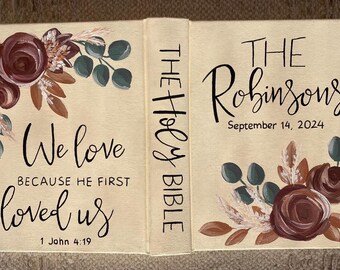 We love
BECAUSE HE FIRST
loved us
1 John 4:19
THE HOLY BIBLE
THE
Robinsons
September 14, 2024